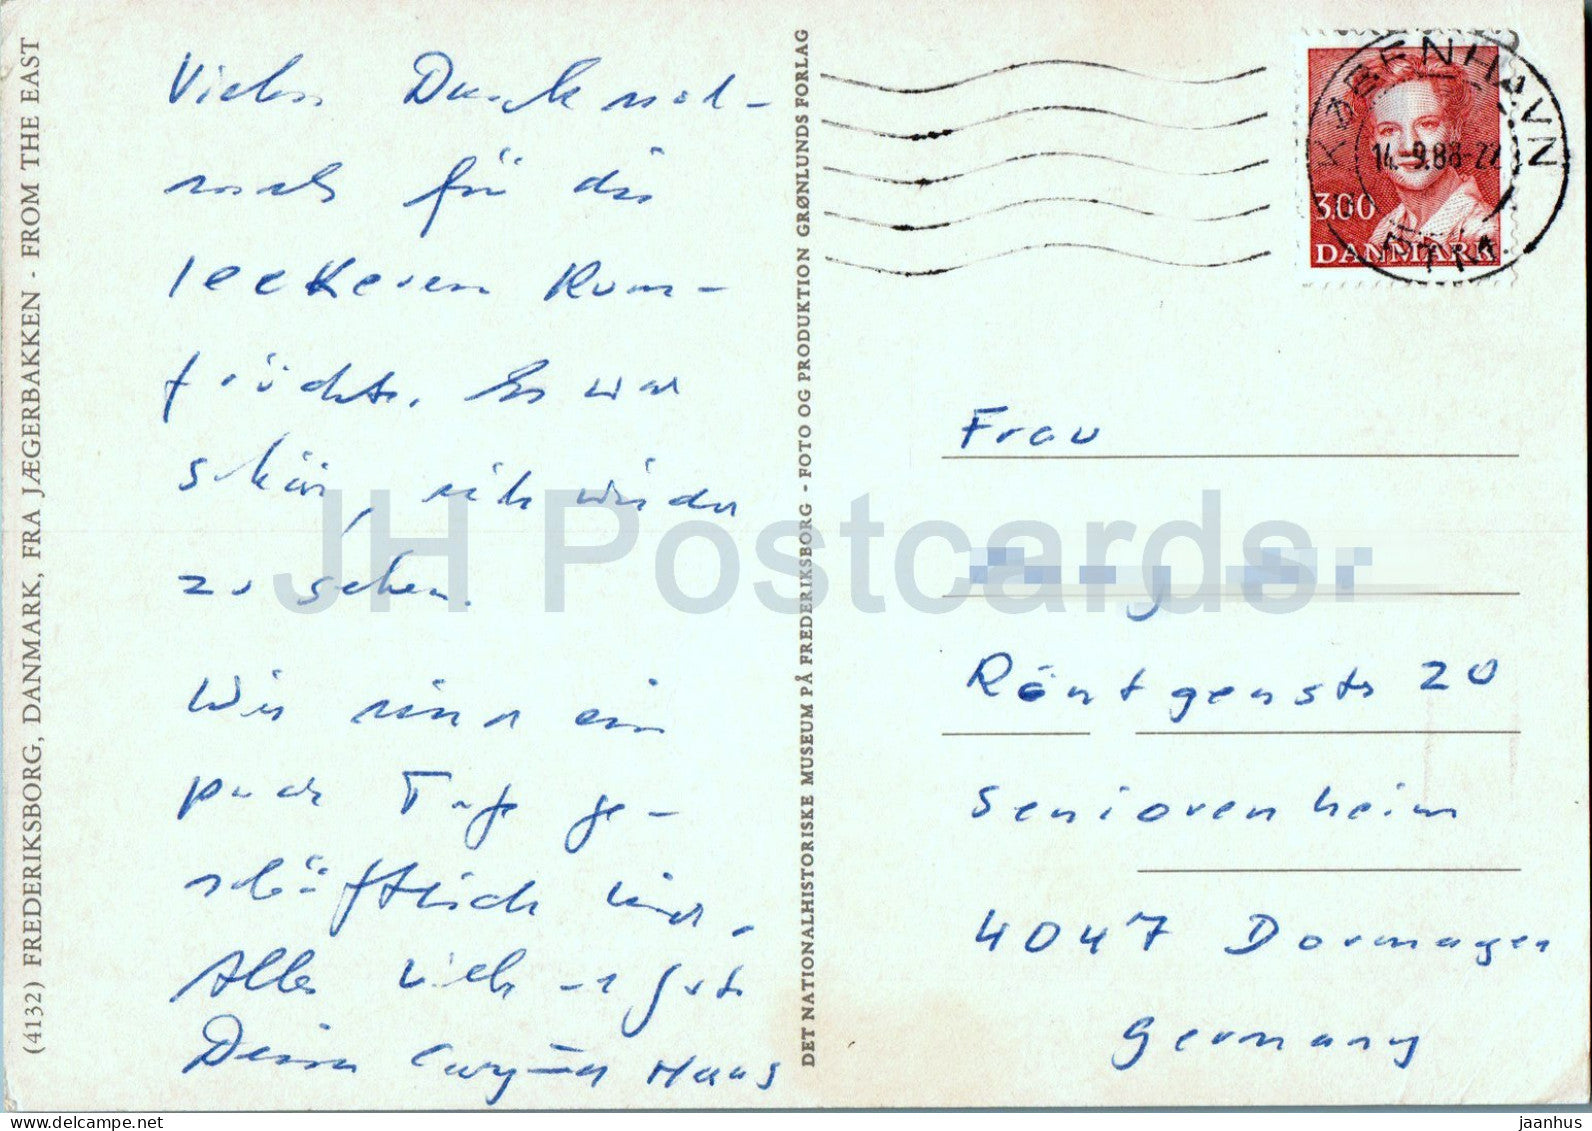 (4132) FREDERIKSBORG, DANMARK, FRA JÆGERBAKKEN - FROM THE EAST
Vielen Dank noch-
mals für die
leckeren Rum-
früchte. Es war
schön, dich wieder
zu sehen.
Wir sind ein
paar Tage ge-
schäftlich hier.
Alles Liebe gute
Deine Haas
DET NATIONALHISTORISKE MUSEUM PÅ FREDERIKSBORG - FOTO OG PRODUKTION GRØNLUNDS FORLAG
KØBENHAVN
14.-9.88-22
3.00
DANMARK
Frau
Röntgenstr 20
Seniorenheim
4047 Dormagen
Germany
JH Postcards
jaanhus